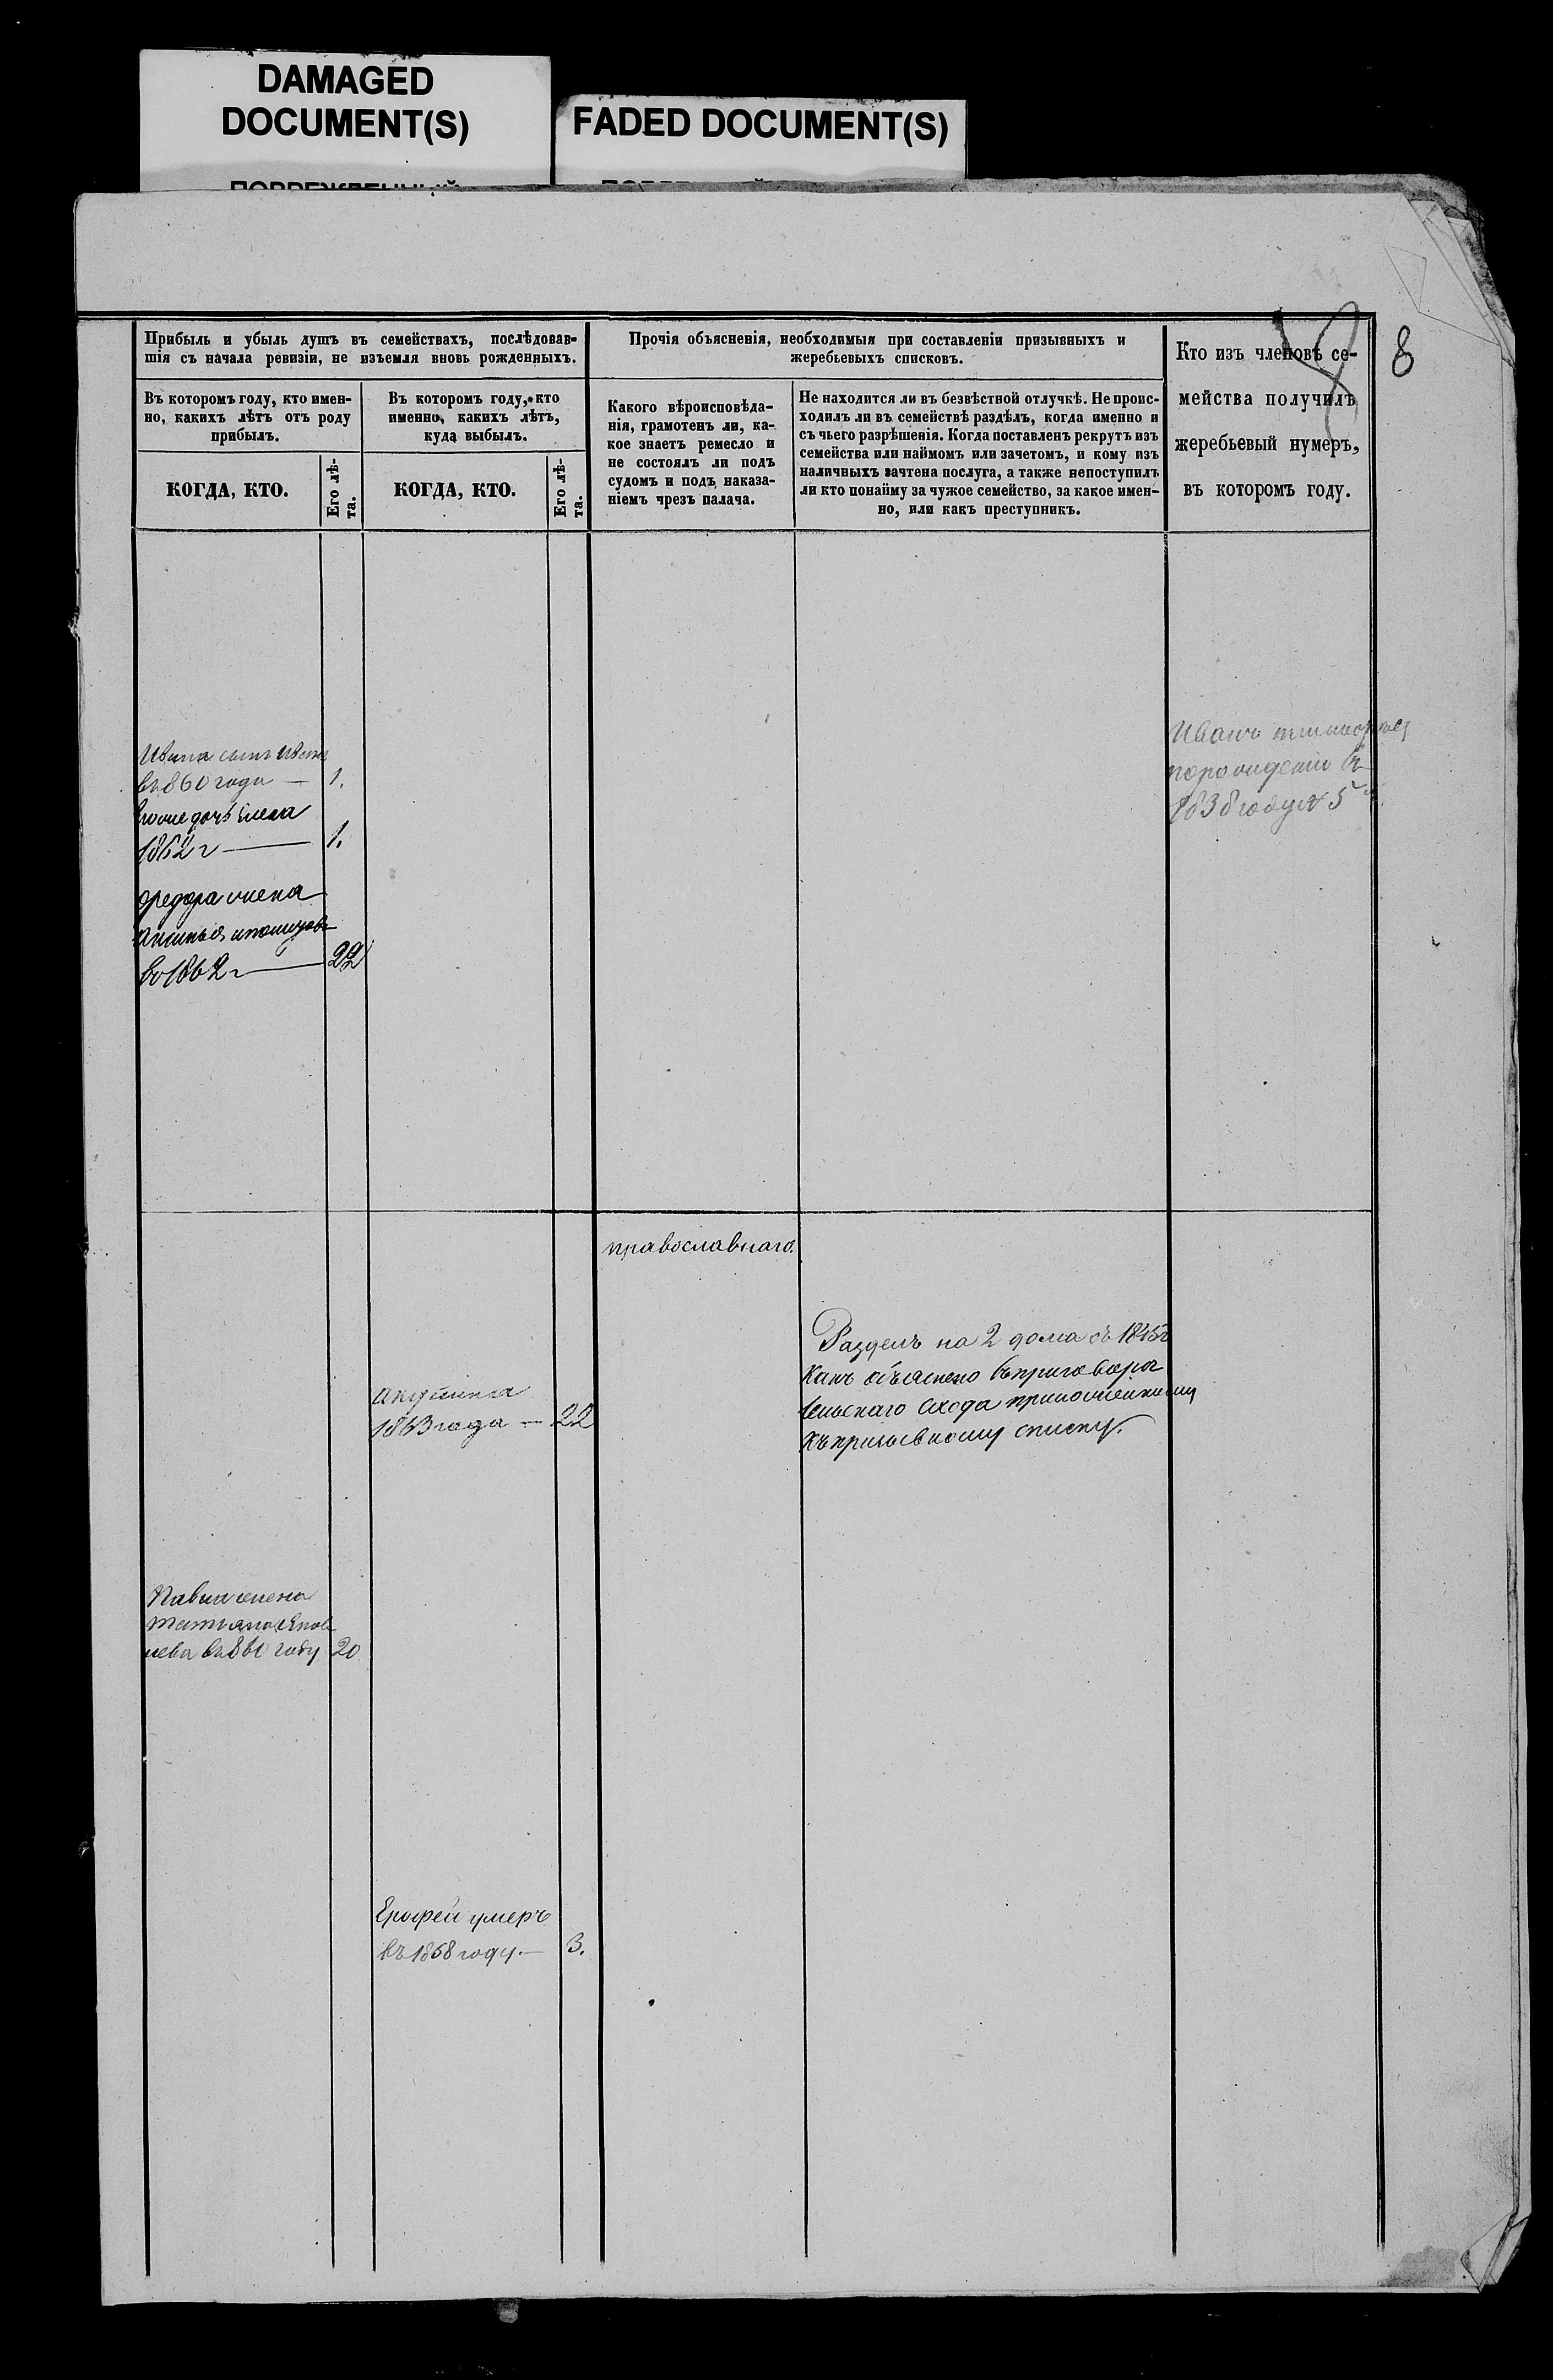 DAMAGED
DOCUMENT(S)
FADED DOCUMENT(S)
8
8
Прибыль и убыль душъ въ семействахъ, послѣдовав-
шія съ начала ревизіи, не изъемля вновь рожденныхъ.
Въ которомъ году, кто имен-
но, какихъ лѣтъ отъ роду
прибылъ.
КОГДА, КТО.
Его лѣ-
та.
Въ которомъ году, кто
именно, какихъ лѣтъ,
куда выбылъ.
КОГДА, КТО.
Его лѣ-
та.
Прочія объясненія, необходимыя при составленіи призывныхъ и
жеребьевыхъ списковъ.
Какого вѣроисповѣда-
нія, грамотенъ ли, ка-
кое знаетъ ремесло и
не состоялъ ли подъ
судомъ и подъ наказа-
ніемъ чрезъ палача.
Не находится ли въ безвѣстной отлучкѣ. Не проис-
ходилъ ли въ семействѣ раздѣлъ, когда именно и
съ чьего разрѣшенія. Когда поставленъ рекрутъ изъ
семейства или наймомъ или зачетомъ, и кому изъ
наличныхъ зачтена послуга, а также непоступилъ
ли кто понайму за чужое семейство, за какое имен-
но, или какъ преступникъ.
Кто изъ членовъ се-
мейства получилъ
жеребьевый нумеръ,
въ которомъ году.
Ивана сынъ Иванъ
въ 860 года — 1.
дочь Елена
1862 г — 1.
Федора жена
Аксинья
во 1862 г — 22
Иванъ
по рождению въ
1838 году № 5
православнаго.
Раздел на 2 дома съ 1845г
Какъ объяснено въ приговоре
Сельскаго схода приложенному
Къ призывному списку.
Акулина
1863 года — 22
Павла жена
Татьяна
въ 860 году 20
Ерофей умеръ
въ 1858 году. — 3.